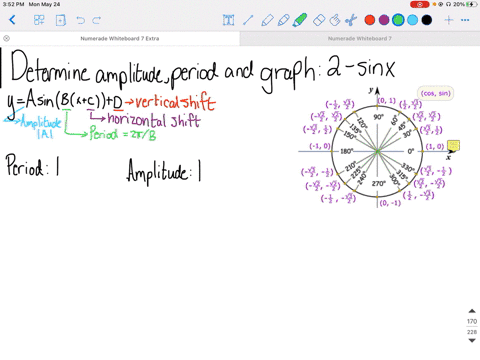 3:52 PM Mon May 24
20%
Numerade Whiteboard 7 Extra
Numerade Whiteboard 7
Determine amplitude, period and graph: 2-sinx
y=Asin(B(x+C))+D→vertical shift
→horizontal shift
Amplitude
|A|
→Period = 2π/B
Period: 1
Amplitude: 1
(cos, sin)
y
(0, 1)
(-1/2, √3/2)
(1/2, √3/2)
(-√2/2, √2/2)
(√2/2, √2/2)
(-√3/2, 1/2)
(√3/2, 1/2)
90°
120°
60°
135°
45°
150°
30°
(-1, 0)
180°
0°
(1, 0)
x
210°
330°
225°
315°
240°
300°
270°
(-√3/2, -1/2)
(√3/2, -1/2)
(-√2/2, -√2/2)
(√2/2, -√2/2)
(-1/2, -√3/2)
(1/2, -√3/2)
(0, -1)
170
228